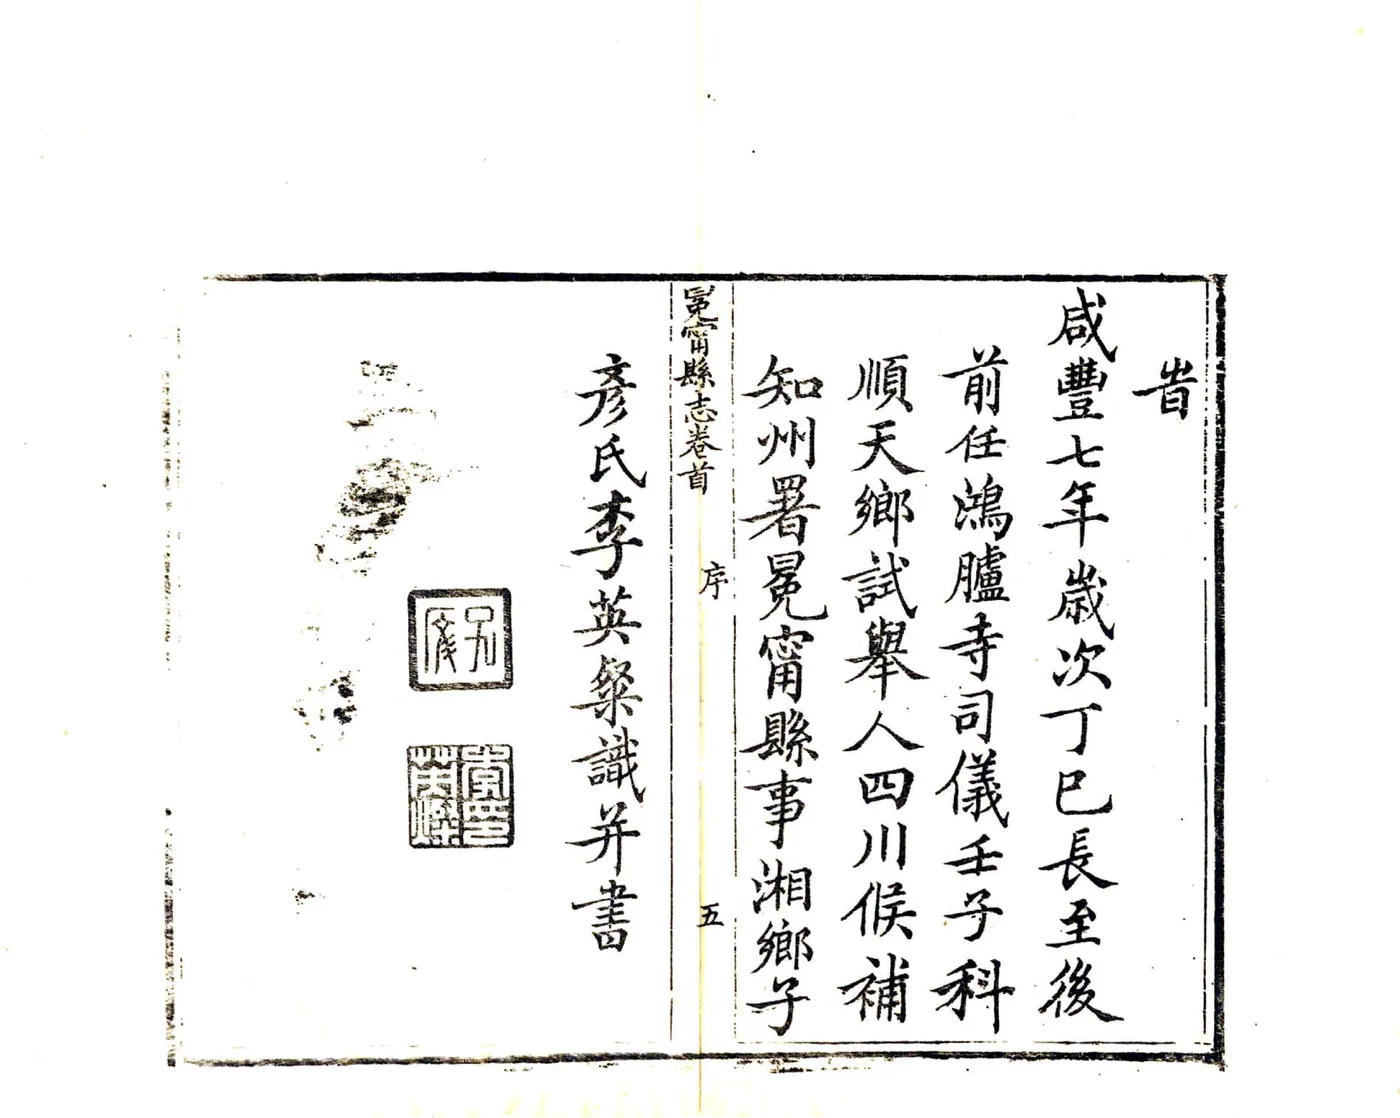 旹
咸豐七年歳次丁巳長至後
前任鴻臚寺司儀壬子科
順天鄉試舉人四川候補
知州署冕甯縣事湘鄉子
冕甯縣志卷首
序
五
彥氏李英粲識并書
子彥